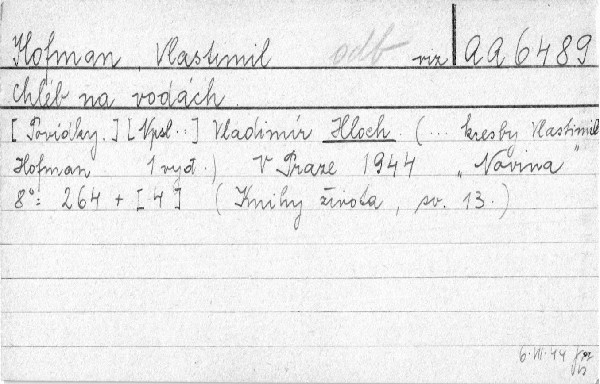 Hofman Vlastimil odb viz AA 6489
Chléb na vodách
[Povídky.] [Npsl..] Vladimír Hloch. (... kresby Vlastimil
Hofman 1 vyd.) V Praze 1944 "Novina"
8°: 264 + [4] (Knihy života, sv. 13.)
6. 44